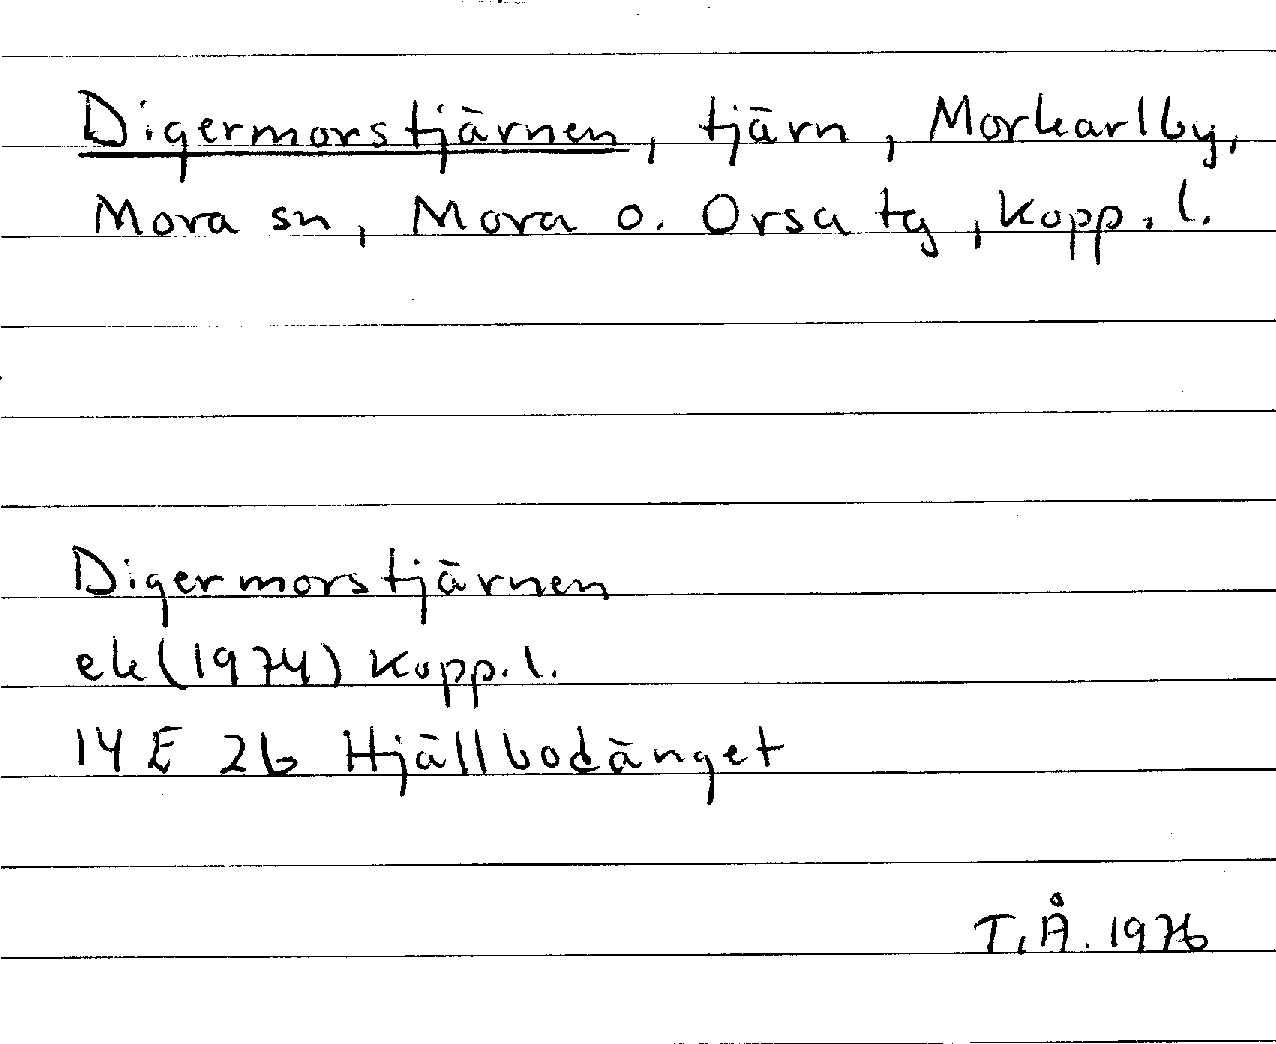 Digermorstjärnen, tjärn, Morkarlby,
Mora sn, Mora o. Orsa tg, Kopp. l.
Digermorstjärnen
ek (1974) Kopp. l.
14 E 2b Hjällbodänget
T.Å. 1976